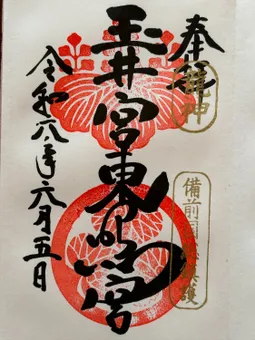 奉拝
玉井宮東照宮
令和六年六月五日
備前国総鎮護